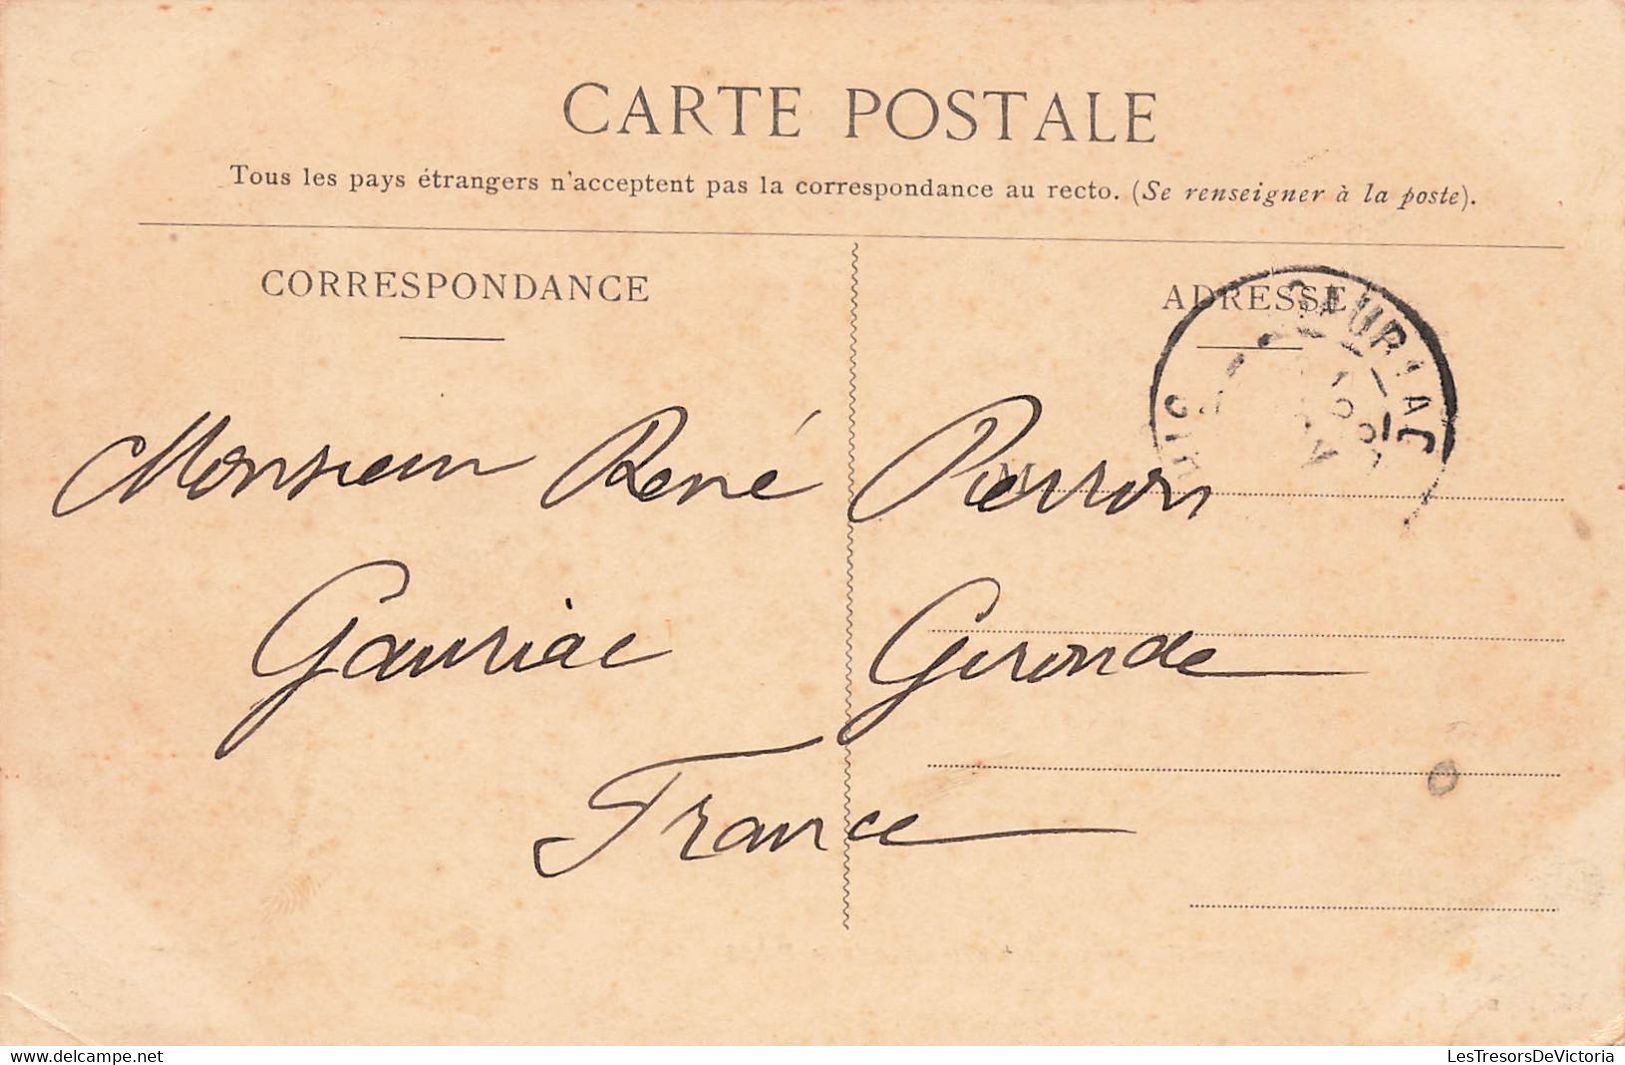 CARTE POSTALE
Tous les pays étrangers n'acceptent pas la correspondance au recto. (Se renseigner à la poste).
CORRESPONDANCE
ADRESSE
GAURIAC
Monsieur René Perron
Gauriac Gironde
France
delcampe.net
LesTresorsDeVictoria